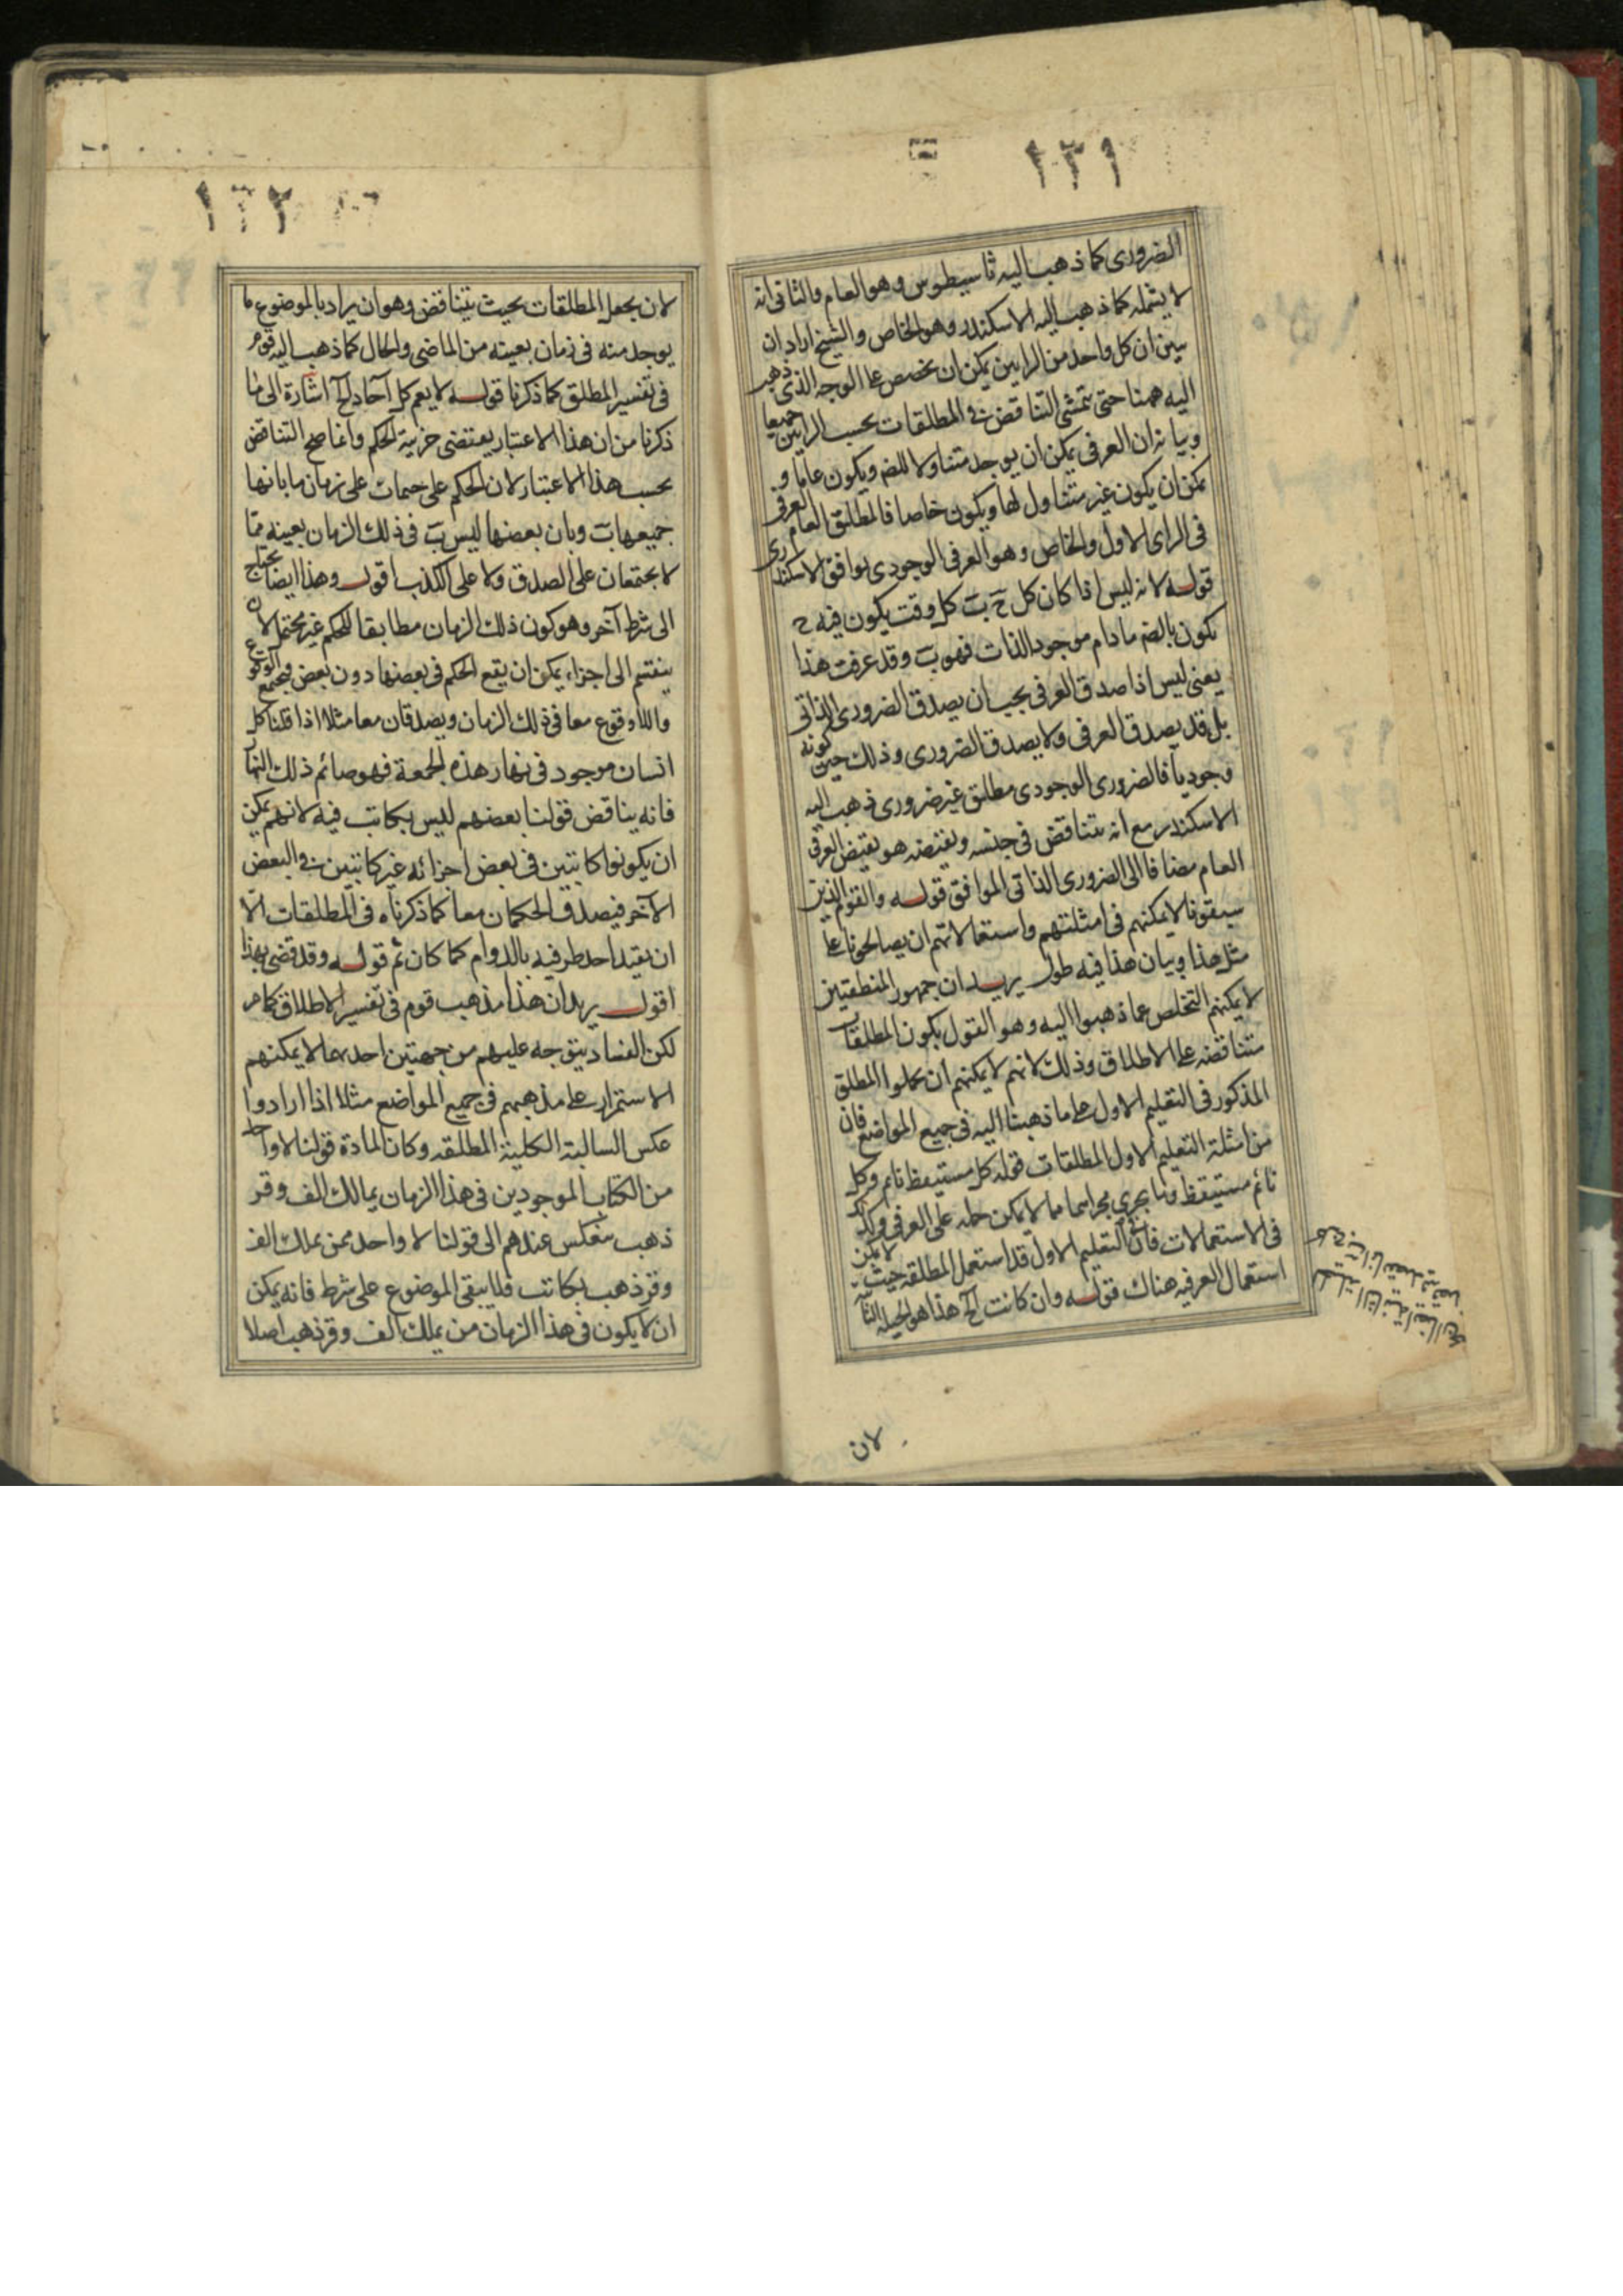 ١٣١
الضروری كما ذهب اليه ثاسيطوس وهو العام والثانی انه
لا يشمله كما ذهب اليه الاسكندر وهو الخاص والشيخ اراد ان
يبين ان كل واحد من الرايين يمكن ان يخصص علی الوجه الذی ذهب
اليه ههنا حتی يتمشی التناقض فی المطلقات بحسب الرايين جميعا
وبيانه ان العرفی يمكن ان يوجد متناولا للضـ ويكون عاما و
يمكن ان يكون غير متناول لها ويكون خاصا فالمطلق العام العرفی
فی الرای الاول والخاص وهو العرفی الوجودی يوافق الاسكندری
قوله لانه ليس اذا كان كل ج ب كل وقت يكون فيه ج
يكون بالضـ ما دام موجود الذات فهو ب وقد عرفت هذا
يعنی ليس اذا صدق العرفی يجب ان يصدق الضروری الذاتی
بل قد يصدق العرفی ولا يصدق الضروری وذلك حين كونه
وجوديا فالضروری الوجودی مطلق غير ضروری ذهب اليه
الاسكندر مع انه يتناقض فی جنسه ونقيضه هو نقيض العرفی
العام مضافا الی الضروری الذاتی الموافق قوله والقوم الذين
سبقونا لا يمكنهم فی امثلتهم واستعمالاتهم ان يصالحونا علی
مثل هذا وبيان هذا فيه طول يريد ان جمهور المنطقيين
لا يمكنهم التخلص عما ذهبوا اليه وهو القول بكون المطلقات
متناقضه علی الاطلاق وذلك لانهم لا يمكنهم ان يحملوا المطلق
المذكور فی التعليم الاول علی ما ذهبنا اليه فی جميع المواضع فان
من امثلة التعليم الاول المطلقات قوله كل مستيقظ نائم وكل
نائم مستيقظ وما يجری مجراهما مما لا يمكن حمله علی العرفی وكذلك
فی الاستعمالات فان التعليم الاول قد استعمل المطلقه حيث لا يمكن
استعمال العرفيه هناك قوله وان كانت الخ هذا هو الحيلة الثانيه
لان
١٣٢
لان يجعل المطلقات بحيث يتناقض وهو ان يراد بالموضوع ما
يوجد منه فی زمان بعينه من الماضی والحال كما ذهب اليه قوم
فی تفسير المطلق كما ذكرنا قوله لا يعم كل آحاد الخ اشارة الی ما
ذكرنا من ان هذا الاعتبار يقتضی جزئية الحكم وانما صح التناقض
بحسب هذا الاعتبار لان الحكم علی جيمات علی زمان ما بانها
جميعها ب وبان بعضها ليس ب فی ذلك الزمان بعينه مما
لا يجتمعان علی الصدق ولا علی الكذب اقول وهذا ايضا يحتاج
الی شرط آخر وهو كون ذلك الزمان مطابقا للحكم غير محتمل لان
ينقسم الی اجزاء يمكن ان يقع الحكم فی بعضها دون بعض فيجتمع الوقوع
واللاوقوع معا فی ذلك الزمان ويصدقان معا مثلا اذا قلنا كل
انسان موجود فی نهار هذه الجمعة فهو صائم ذلك النهار
فانه يناقض قولنا بعضهم ليس بكاتب فيه لانهم يمكن
ان يكونوا كاتبين فی بعض اجزائه غير كاتبين فی البعض
الآخر فيصدق الحكمان معا كما ذكرناه فی المطلقات الا
ان يقيد احد طرفيه بالدوام كما كان ثم قوله وقد قضی بهذا
اقول يريد ان هذا مذهب قوم فی تفسير الاطلاق كما مر
لكن الفساد يتوجه عليهم من جهتين احدهما لا يمكنهم
الاستمرار علی مذهبهم فی جميع المواضع مثلا اذا ارادوا
عكس السالبة الكلية المطلقه وكان المادة قولنا لا واحد
من الكتاب الموجودين فی هذا الزمان يمالك الف وقر
ذهب ينعكس عندهم الی قولنا لا واحد ممن يملك الف
وقر ذهب بكاتب فلا يبقی الموضوع علی شرط فانه يمكن
ان لا يكون فی هذا الزمان من يملك الف وقر ذهب اصلا